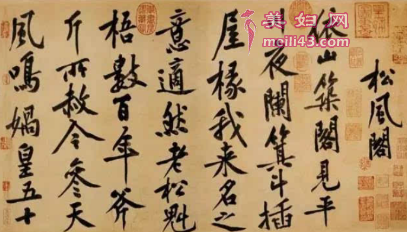 美妇网
meili43.com
松風閣
依山築閣見平
川夜闌箕斗插
屋椽我來名之
意適然老松魁
梧數百年斧
斤所赦今參天
風鳴媧皇五十